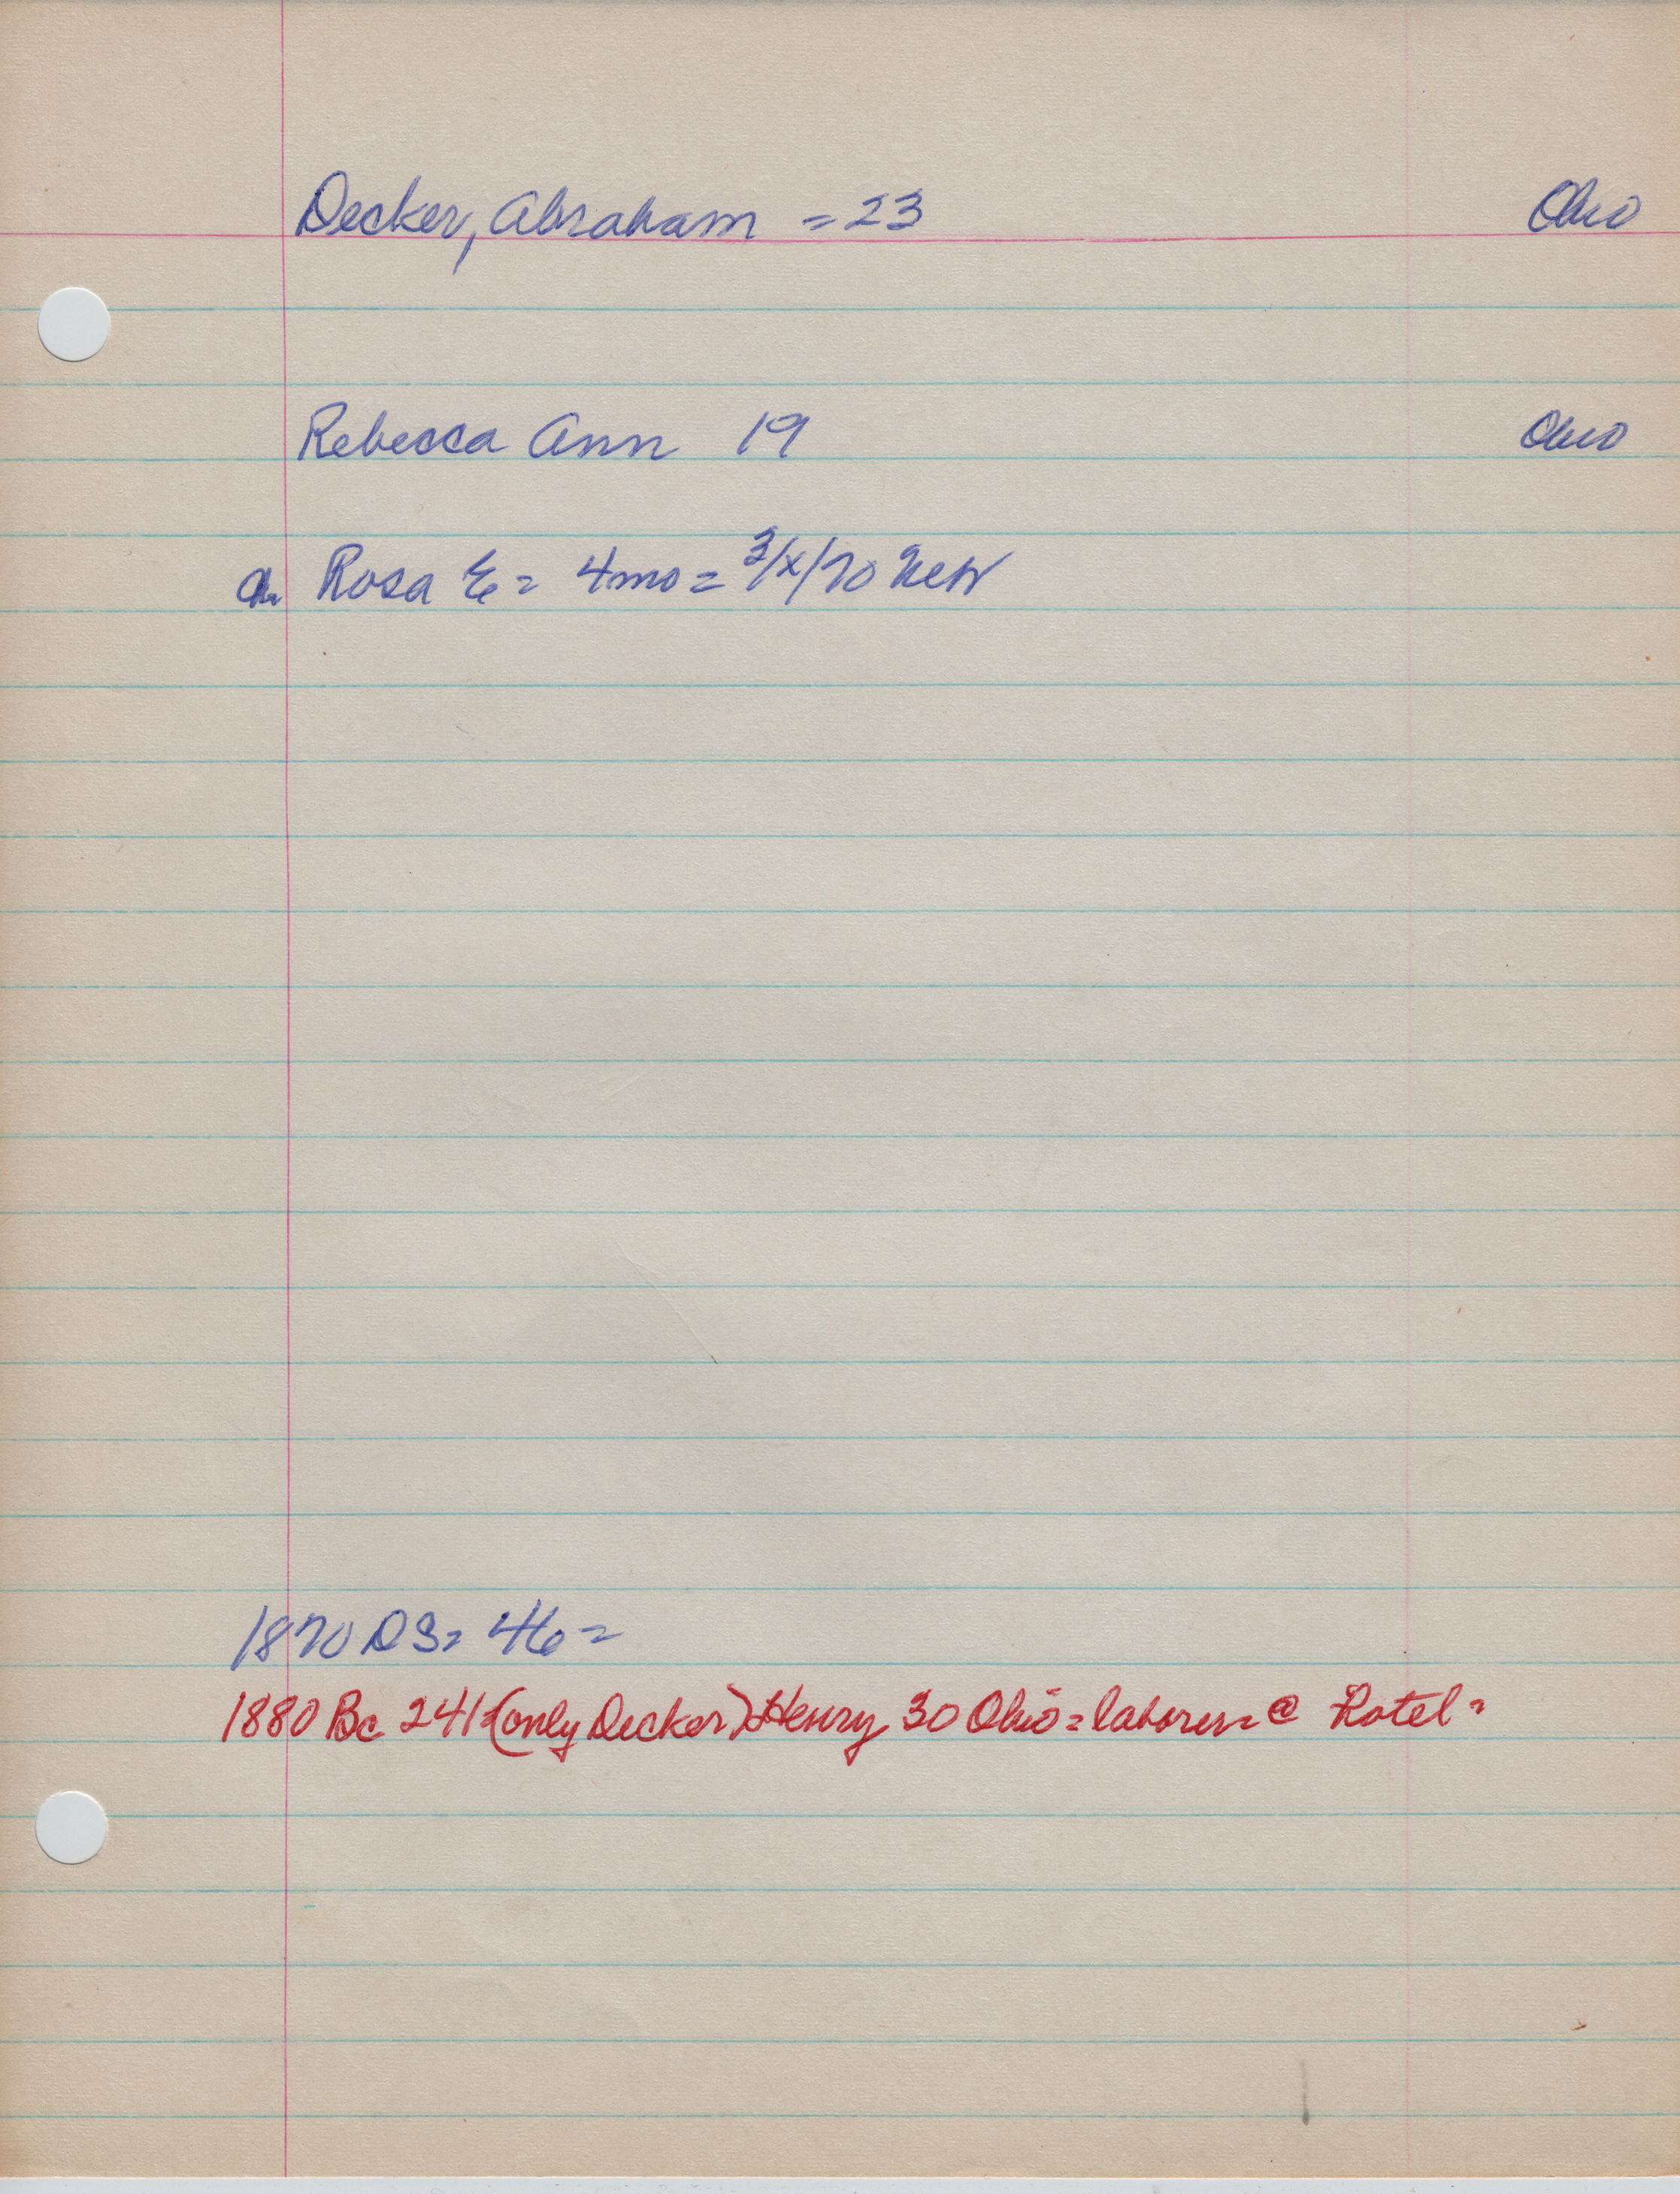 Decker, Abraham = 23 Ohio
Rebecca Ann 19 Ohio
Ch Rosa E = 4mo = 3/x/70 Neb
1870 DS = 46 =
1880 Bc 241 = (only Decker) = Henry 30 Ohio = laborer = @ Hotel =